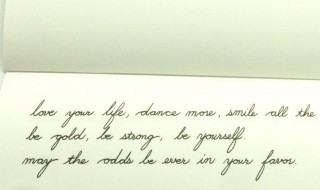 love your life, dance more, smile all the
be gold, be strong, be yourself.
may the odds be ever in your favor.